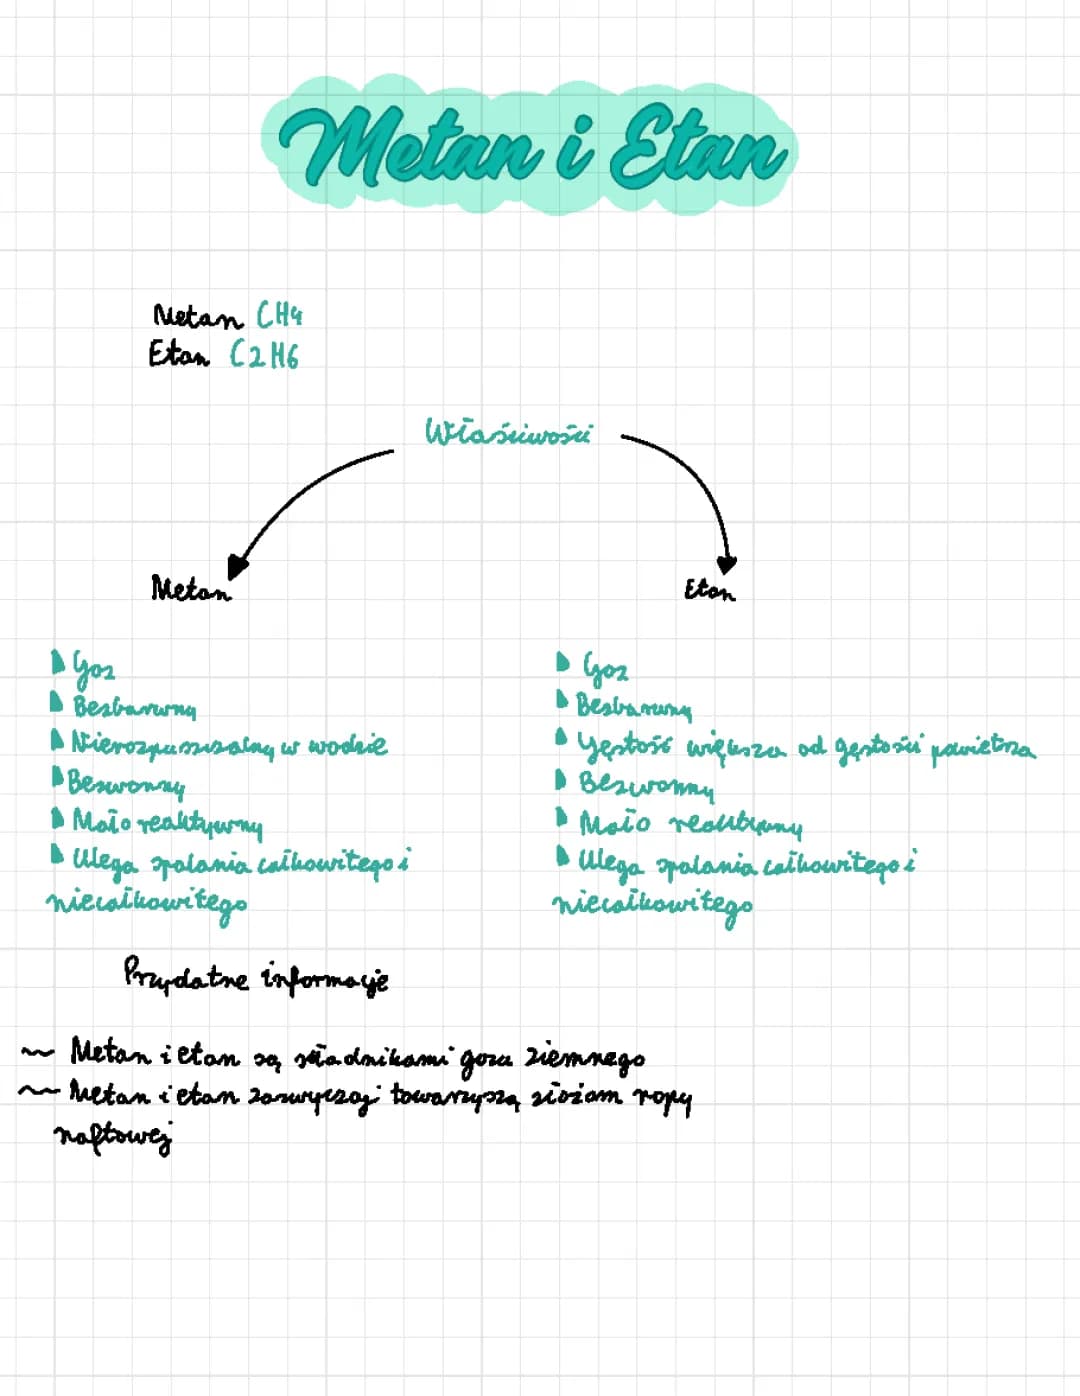 Metan i Etan
Metan CH4
Etan C2H6
Właściwości
Metan
Gaz
Bezbarwny
Nierozpuszczalny w wodzie
Bezwonny
Mało reaktywny
Ulega spalania całkowitego i
niecałkowitego
Etan
Gaz
Bezbarwny
Gęstość większa od gęstości powietrza
Bezwonny
Mało reaktywny
Ulega spalania całkowitego i
niecałkowitego
Przydatne informacje
~ Metan i etan są składnikami gazu ziemnego
~ Metan i etan zazwyczaj towarzyszą złożom ropy
naftowej